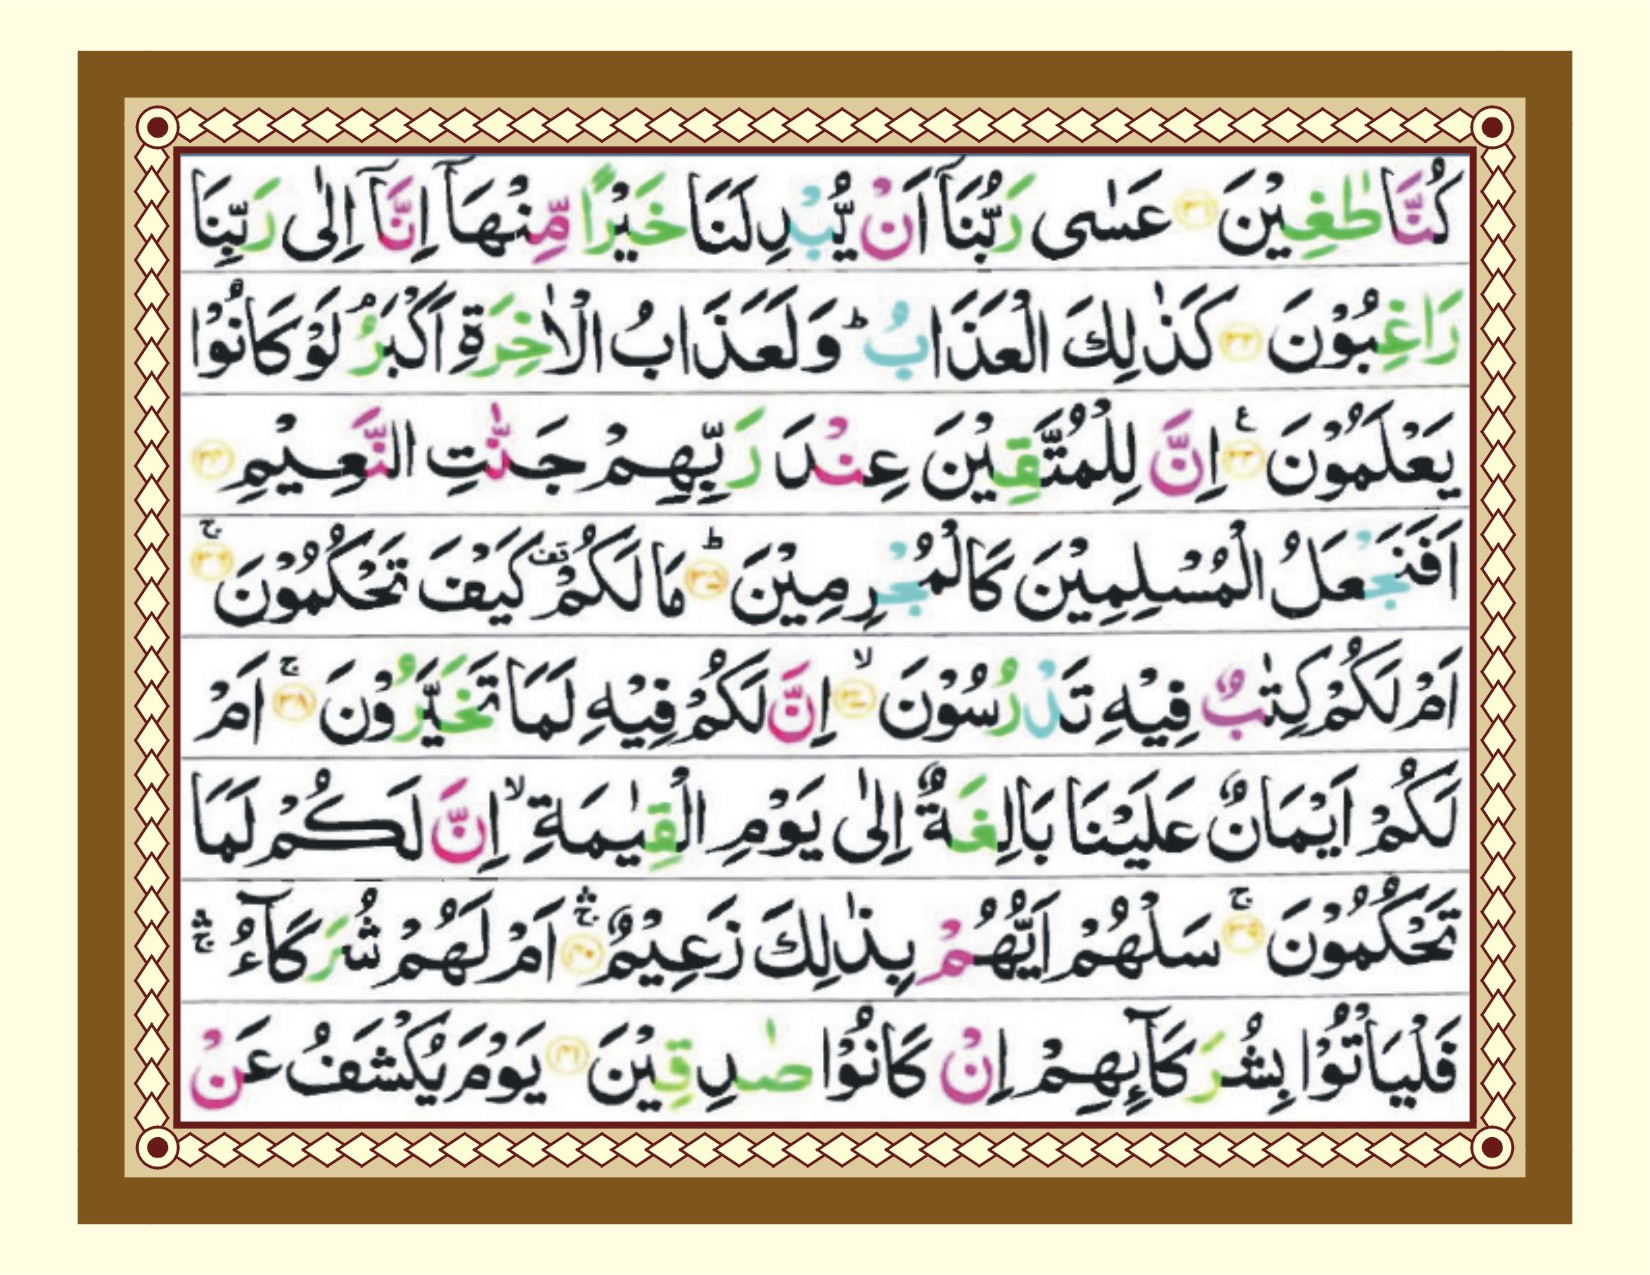 كُنَّا طٰغِيْنَ ﴿۳۱﴾ عَسٰى رَبُّنَاۤ اَنْ يُّبْدِلَنَا خَيْرًا مِّنْهَاۤ اِنَّاۤ اِلٰى رَبِّنَا
رَاغِبُوْنَ ﴿۳۲﴾ كَذٰلِكَ الْعَذَابُ ؕ وَلَعَذَابُ الْاٰخِرَةِ اَكْبَرُ ۘ لَوْ كَانُوْا
يَعْلَمُوْنَ ﴿۳۳﴾ ع اِنَّ لِلْمُتَّقِيْنَ عِنْدَ رَبِّهِمْ جَنّٰتِ النَّعِيْمِ ﴿۳۴﴾
اَفَنَجْعَلُ الْمُسْلِمِيْنَ كَالْمُجْرِمِيْنَ ﴿۳۵﴾ؕ مَا لَكُمْ ٙ كَيْفَ تَحْكُمُوْنَ ﴿۳۶﴾ۚ
اَمْ لَكُمْ كِتٰبٌ فِيْهِ تَدْرُسُوْنَ ﴿۳۷﴾ۙ اِنَّ لَكُمْ فِيْهِ لَمَا تَخَيَّرُوْنَ ﴿۳۸﴾ۚ اَمْ
لَكُمْ اَيْمَانٌ عَلَيْنَا بَالِغَةٌ اِلٰى يَوْمِ الْقِيٰمَةِ ۙ اِنَّ لَكُمْ لَمَا
تَحْكُمُوْنَ ﴿۳۹﴾ۚ سَلْهُمْ اَيُّهُمْ بِذٰلِكَ زَعِيْمٌ ﴿۴۰﴾ۛۚ اَمْ لَهُمْ شُرَكَآءُ ۛۚ
فَلْيَاْتُوْا بِشُرَكَآئِهِمْ اِنْ كَانُوْا صٰدِقِيْنَ ﴿۴۱﴾ يَوْمَ يُكْشَفُ عَنْ